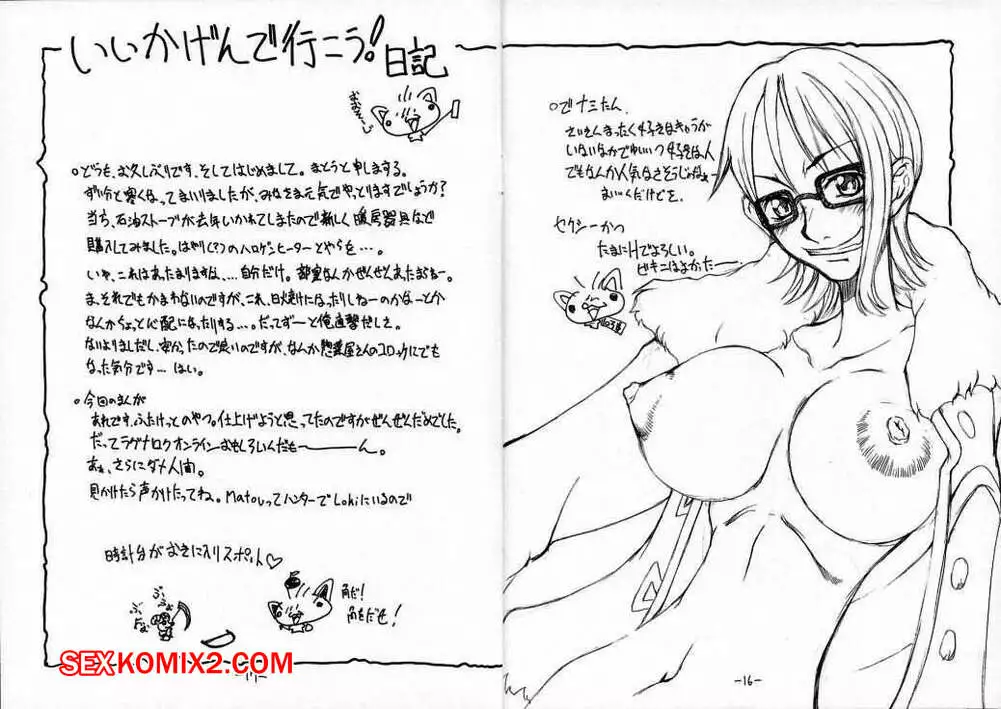 いいかげんで行こう!日記
。どうも、お久しぶりです。そしてはじめまして。まとうと申しまする。
ずい分と寒くなってまいりましたが、みなさま元気でやっとりますでしょうか?
当ち、石油ストーブが去年いかれてしまたので新しく暖房器具など
購入してみました。はやり(?)のハロゲンヒーターとやらを…。
いや、これはあたたまりますな、…自分だけ。部屋なんかぜんぜんあったまらねー。
ま、それでもかまわないのですが、これ、日焼けになったりしねーのかなーとか
なんかちょっと心配になったりする…。だってずーと俺直撃だしさ。
ないよりましだし、安かったので良いのですが、なんか惣菜屋さんのコロッケにでも
なった気分です…はい。
。今回のまんが
あれです、ふたけっとのやつ。仕上げようと思ってたのですがぜんぜんだめでした。
だってラグナロクオンラインおもしろいんだも〜ん。
あぁ、さらにダメ人間。
見かけたら声かけたってね。MatouってハンターでLokiにいるので
時計台がお気に入りスポット♡
角だ!
角をだせ!
SEXKOMIX2.COM
。でナミたん。
さいきんまったく好きなきゃらが
いないなかでゆいいつ好きな人
でもなんか人気なさそうじゃねぇー
まいいんだけどさ。
セクシーかつ
たまにHでよろしい。
ビキニはよかったー
-16-